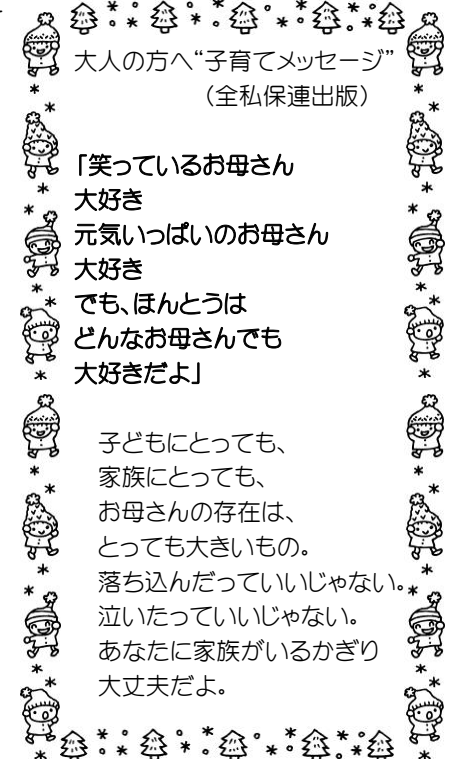 大人の方へ“子育てメッセージ”
（全私保連出版）
「笑っているお母さん
大好き
元気いっぱいのお母さん
大好き
でも、ほんとうは
どんなお母さんでも
大好きだよ」
子どもにとっても、
家族にとっても、
お母さんの存在は、
とっても大きいもの。
落ち込んだっていいじゃない。
泣いたっていいじゃない。
あなたに家族がいるかぎり
大丈夫だよ。